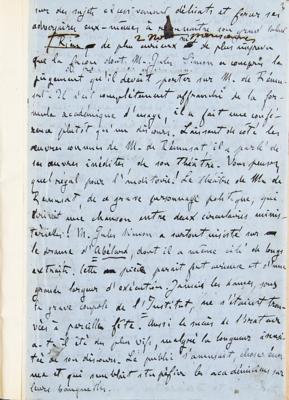 sur des sujets excessivement délicats et forcer ses
adversaires eux-mêmes à reconnaître son grand talent
Rien de plus curieux et de plus imprévu
que la façon dont M. Jules Simon a compris le
jugement qu'il devait porter sur M. de Rému-
sat. Il s'est complètement affranchi de la for-
mule académique d'usage, il a fait une confé-
rence plutôt qu'un discours. Laissant de côté les
œuvres connues de M. de Rémusat il a parlé de
ses œuvres inédites de son théâtre. Vous pensez
quel régal pour l'auditoire! Le théâtre de M. de
Rémusat, de ce grave personnage politique, qui
écrivait une chanson entre deux circulaires minis-
térielles! M. Jules Simon a surtout insisté sur
le drame d'Abélard, dont il a même cité de longs
extraits. Cette pièce paraît fort curieuse et d'une
grande largeur d'exécution. Jamais les dames, sous
la grave coupole de l'Institut, ne s'étaient trou-
vées à pareille fête. Aussi le succès de l'orateur
a-t-il été des plus vifs, malgré la longueur inusi-
tée de son discours. Le public s'amusait, chose énor-
me et qui semblait stupéfier les académiciens sur
leurs banquettes.